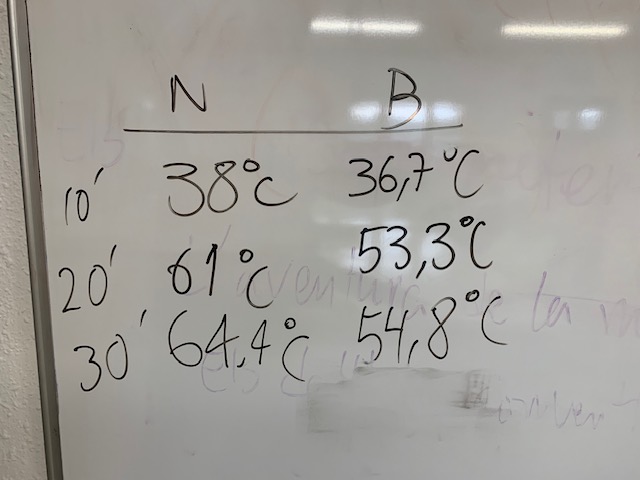 N B
10' 38°C 36,7°C
20' 61°C 53,3°C
30' 64,4°C 54,8°C